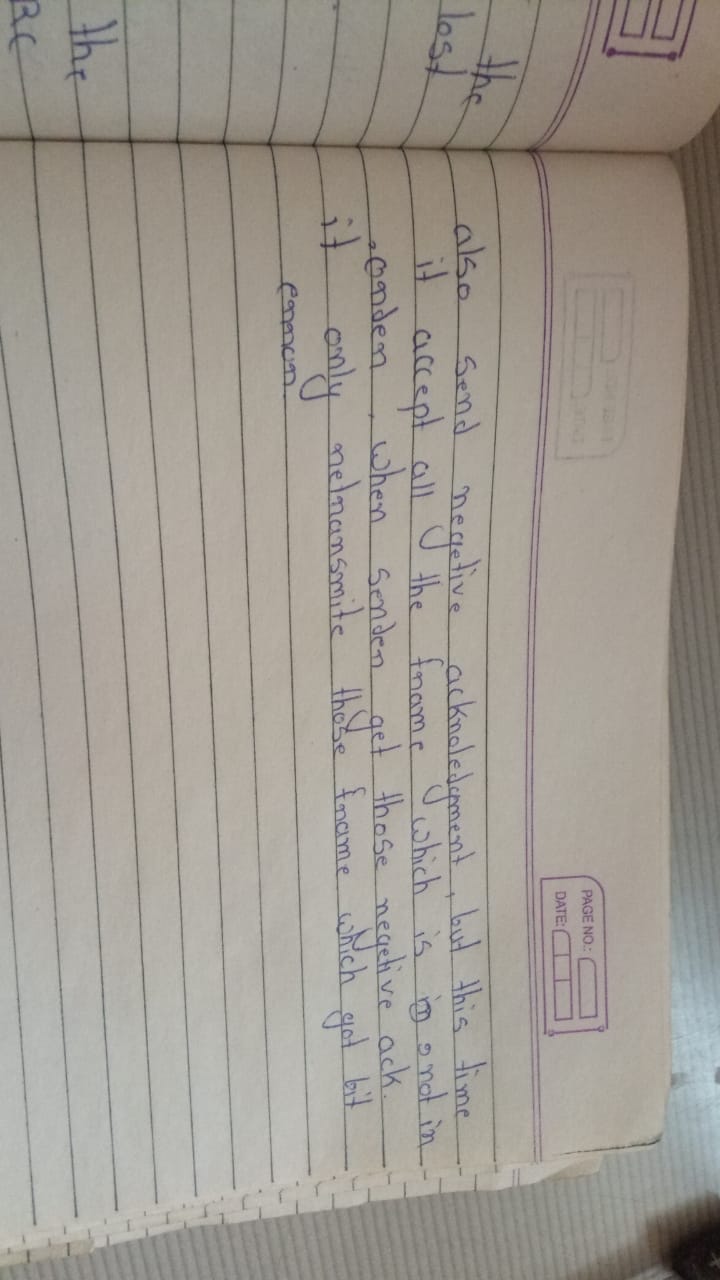 PAGE NO.:
DATE:
the
lost
also send negetive acknoledgment, but this time
it accept all the frame which is in not in
order, when sender get those negetive ack.
it only retransmite those frame which got bit
error.
the
RC